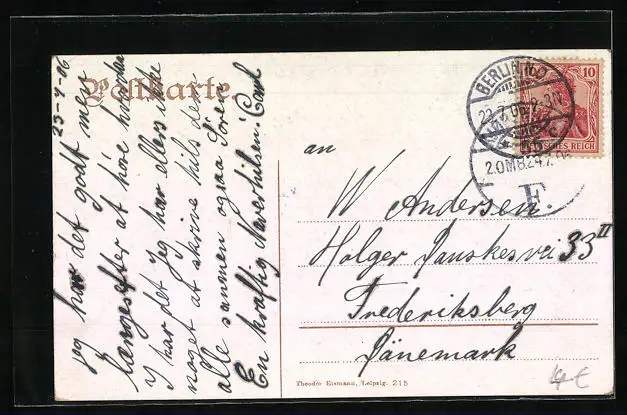 Postkarte.
23-7-06
jeg har det godt men
længes efter at höre hvordan
I har det jeg har ellers ikke
noget at skrive hils dem
alle sammen ogsaa Sören
En kräftig Næverhilsen: Carl
BERLIN N.O.
23.7.06.
DEUTSCHES REICH
10
F
an
W Andersen.
Holger Danskesvei 33 II
Frederiksberg
Dänemark
Theodor Eismann, Leipzig. 215
4€